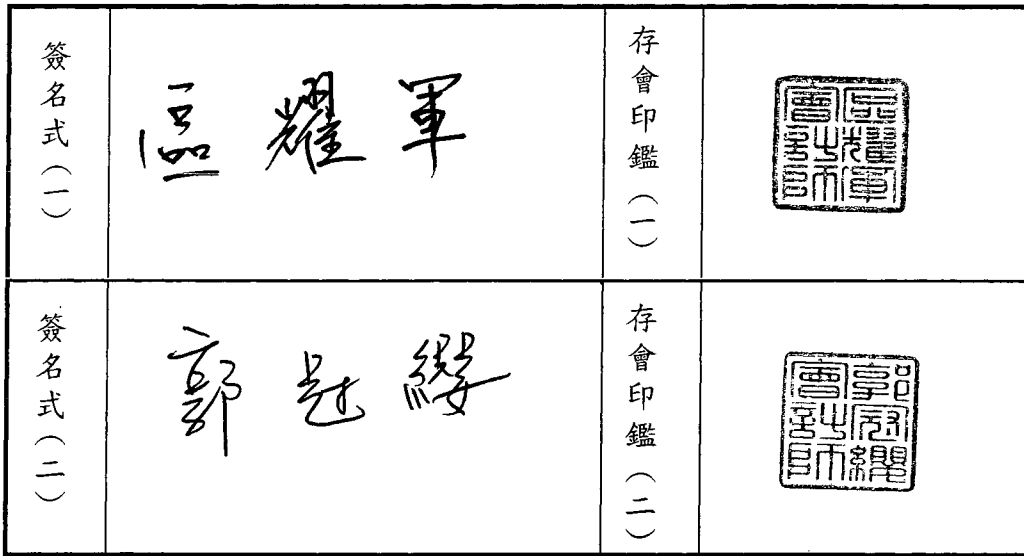 簽名式（一）
區耀軍
存會印鑑（一）
區耀軍會計師
簽名式（二）
郭冠纓
存會印鑑（二）
郭冠纓會計師